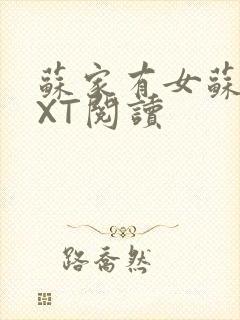 蘇家有女蘇
XT閱讀
路喬然